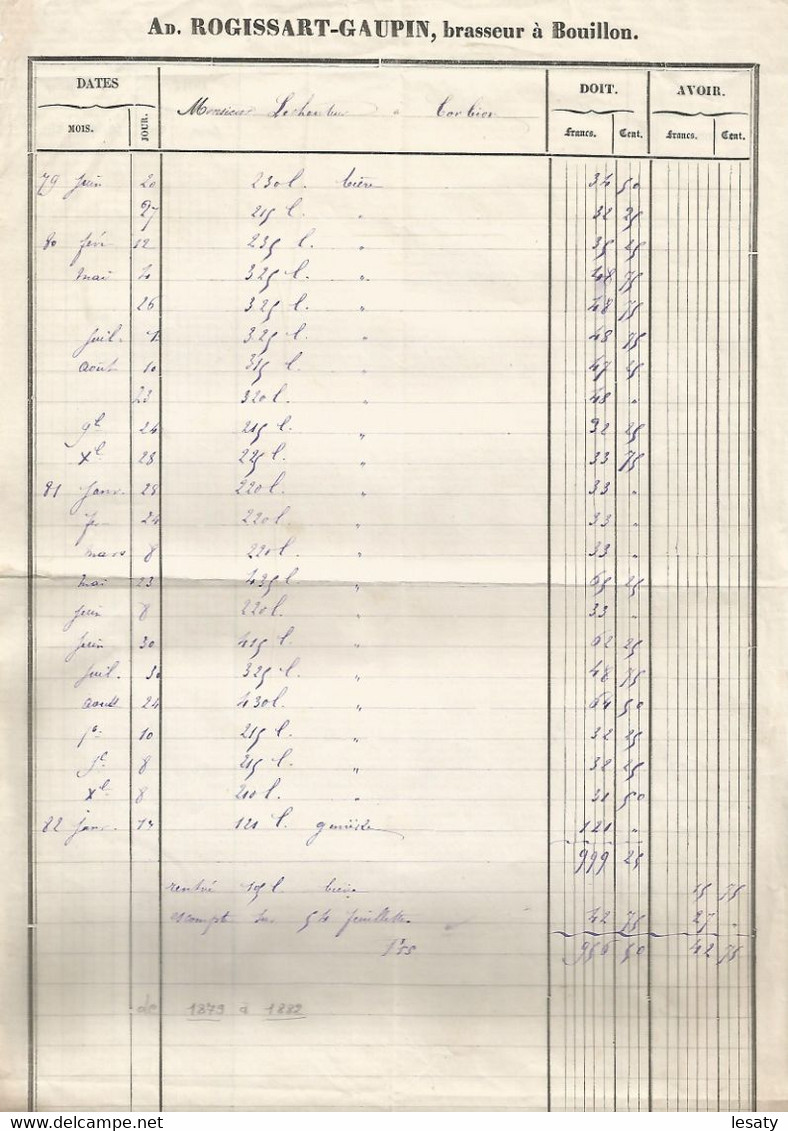 AD. ROGISSART-GAUPIN, brasseur à Bouillon.
DATES DOIT. AVOIR.
MOIS. JOUR. Monsieur à Corbion Francs. Cent. Francs. Cent.
79 juin 20 230 l. bière 34 50
27 215 l. " 32 25
80 fév. 12 235 l. " 35 25
mai 4 325 l. " 48 75
26 325 l. " 48 75
juil. 1 325 l. " 48 75
août 10 315 l. " 47 25
23 320 l. " 48 "
9b 24 215 l. " 32 25
Xb 28 225 l. " 33 75
81 janv. 28 220 l. " 33 "
24 220 l. " 33 "
mars 8 220 l. " 33 "
mai 23 435 l. " 65 25
juin 8 220 l. " 33 "
juin 30 415 l. " 62 25
juil. 30 325 l. " 48 75
août 24 430 l. " 64 50
10 215 l. " 32 25
8 215 l. " 32 25
Xb 8 210 l. " 31 50
82 janv. 121 l. genièvre 121 "
999 25
rentré 105 l. bière 15 75
escompte sur 54 feuillettes 42 75 27 "
956 50 42 75
de 1879 à 1882
lesaty